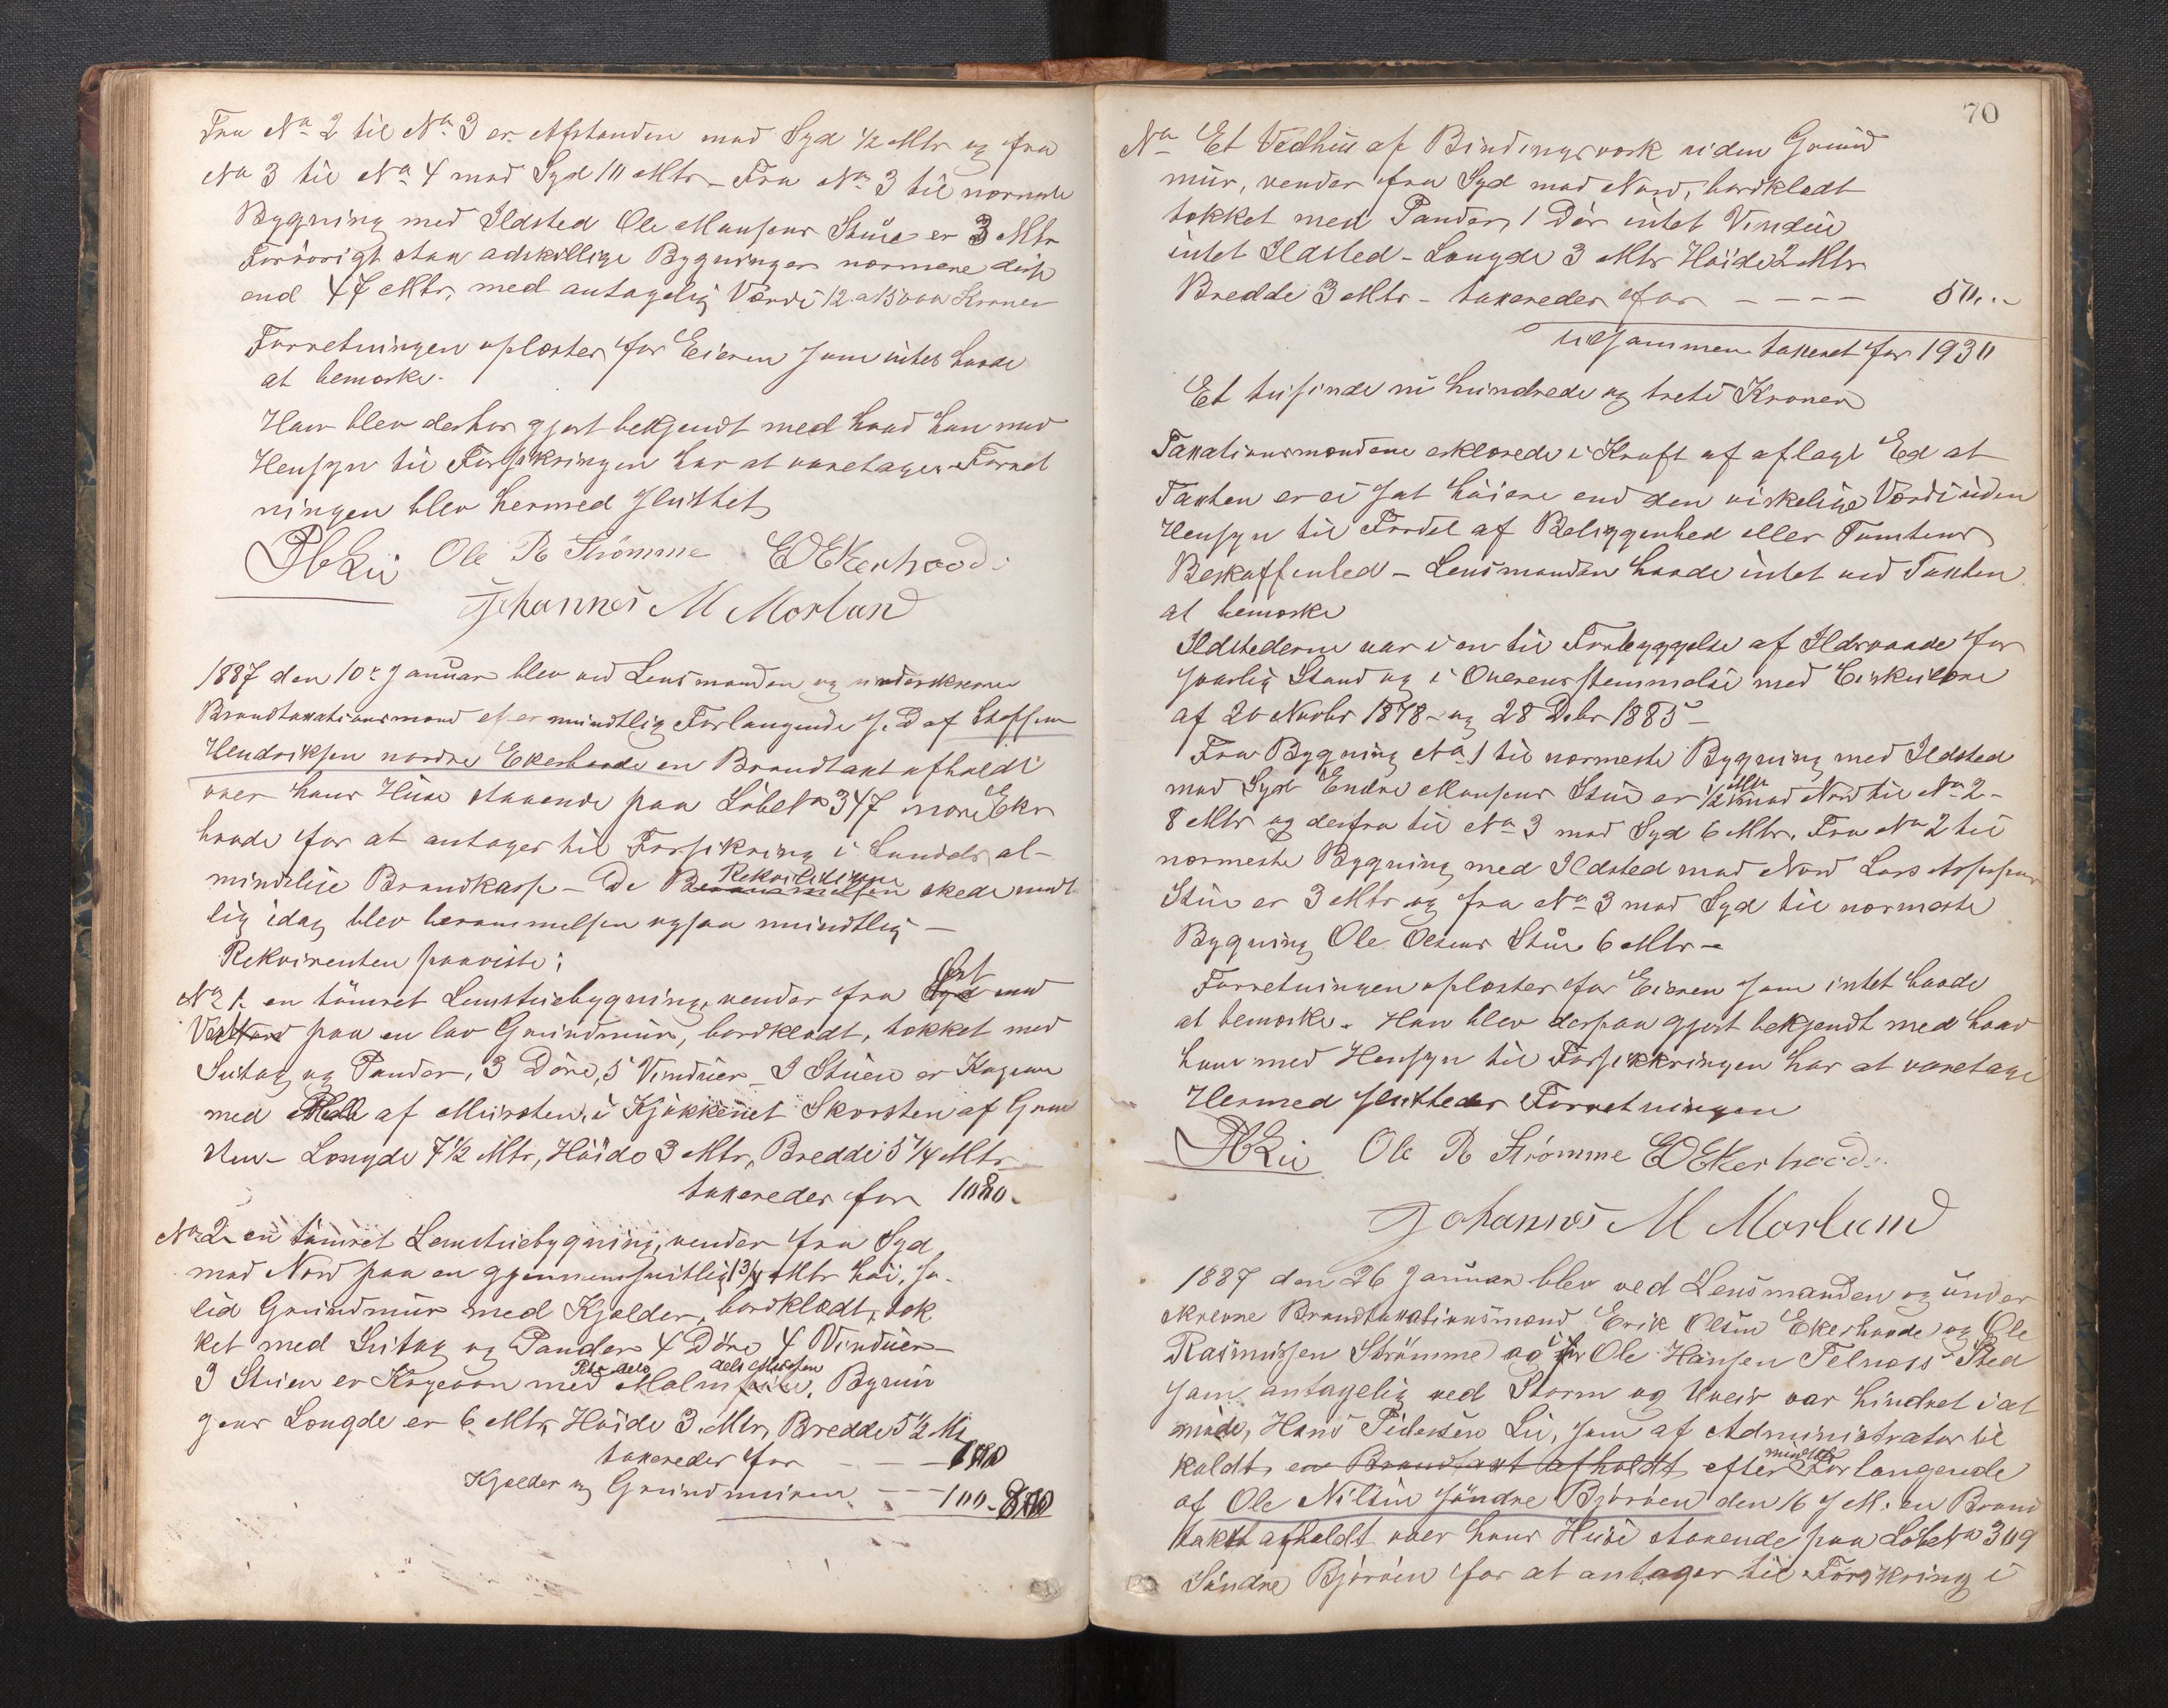 Fra No 2 til No 3 er Afstanden mod Syd 1/2 Mtr og fra
No 3 til No 4 mod Syd 10 Mtr - Fra No 3 til nærmeste
Bygning med Ildsted Ole Monsens Stue er 3 Mtr
Forövrigt staa adskillige Bygninger nærmere disse
end 47 Mtr, med antagelig Værdi 12 a 15000 Kroner
Forretningen oplæstes for Eieren som intet havde
at bemærke.
Han blev derhos gjort bekjendt med hvad han med
Hensyn til Forsikringen har at varetage. Forret
ningen blev hermed sluttet
Ole R Strømme EOEkerhoode
Johannes M Morland
1887 den 10de Januar blev ved Lensmanden og underskrevne
Brandtaxationsmænd efter mundtlig Forlangende s. D af Steffen
Hendriksen nordre Ekerhovde en Brandtaxt afholdt
over hans Huse staaende paa Löbe No 347 nore Eker
hovde for at antages til Forsikring i Landets al-
mindelige Brandkasse - Da Rekvisitionen skede mundt
lig idag blev berammelsen ogsaa mundtlig -
Rekvirenten paaviste:
No 1. en tömret Lemstuebygning, vender fra Öst mod
Vest paa en lav Grundmur, bordklædt, tækket med
Sutag og Pander, 3 Döre, 5 Vinduer - I Stuen er Kogeovn
med af Mursten, i Kjökkenet Skorsten af Graa
sten - Længde 7 1/2 Mtr, Höide 3 Mtr, Bredde 5 1/4 Mtr
taxeredes for 1080.
No 2 en tömret Lemstuebygning, vender fra Syd
mod Nord paa en gjennemsnitlig 1 3/4 Mtr höi, so-
lid Grundmur med Kjelder, bordklædt, tæk
ket med Sutag og Pander 4 Döre 4 Vinduer -
I Stuen er Kogeovn med Rör dels Malm dels Mursten, Bygnin
gens Længde er 6 Mtr, Höide 3 Mtr, Bredde 5 1/2 Mtr
taxeredes for - - - 700
Kjelder og Grundmuren - - - 100 - 800
70
No Et Vedhus af Bindingsværk uden Grund
mur, vender fra Syd mod Nord, bordklædt
tækket med Pander, 1 Dör intet Vindue
intet Ildsted - Længde 3 Mtr Höide 2 Mtr
Bredde 3 Mtr - taxeredes for - - - - 50..
tilsammen taxeret for 1930
Et tusinde ni hundrede og treti Kroner
Taxationsmændene erklærede i Kraft af aflagt Ed at
Taxten er ei sat höiere end den virkelige Værdi uden
Hensyn til Fordel af Beliggenhed eller Tomtens
Beskaffenhed - Lensmanden havde intet ved Taxten
at bemærke
Ildstederne var i en til Forebyggelse af Ildsvaade for
svarlig Stand og i Overensstemmelse med Cirkulære
af 20 Novbr 1878 - og 28 Debr 1885 -
Fra Bygning No 1 til nærmeste Bygning med Ildsted
mod Syd Endre Monsens Stue er 1/2 Mtr mod Nord til No 2 -
8 Mtr og derfra til No 3 mod Syd 6 Mtr. Fra No 2 til
nærmeste Bygning med Ildsted mod Nord Lars
Stue er 3 Mtr og fra No 3 mod Syd til nærmeste
Bygning Ole Olsens Stue 6 Mtr -
Forretningen oplæstes for Eieren som intet havde
at bemærke. Han blev derpaa gjort bekjendt med hvad
han med Hensyn til Forsikkringen har at varetage
Hermed sluttedes Forretningen
Ole R Strømme EOEkerhoode
Johannes M Morland
1887 den 26 Januar blev ved Lensmanden og under
skrevne Brandtaxationsmænd Erik Olsen Ekerhovde og Ole
Rasmussen Strömme og i Ole Hansen Telnæs Sted
som antagelig ved Storm og Uveir var hindret i at
möde, Hans Pedersen Lie, som af Administrator til
kaldt, en Brandtaxt afholdt efter mundtlig Forlangende
af Ole Nilsen Söndre Björöen den 16 s. M. en Brand
taxt afholdt over hans Huse staaende paa Löbe No 309
Söndre Björöen for at antages til Forsikring i